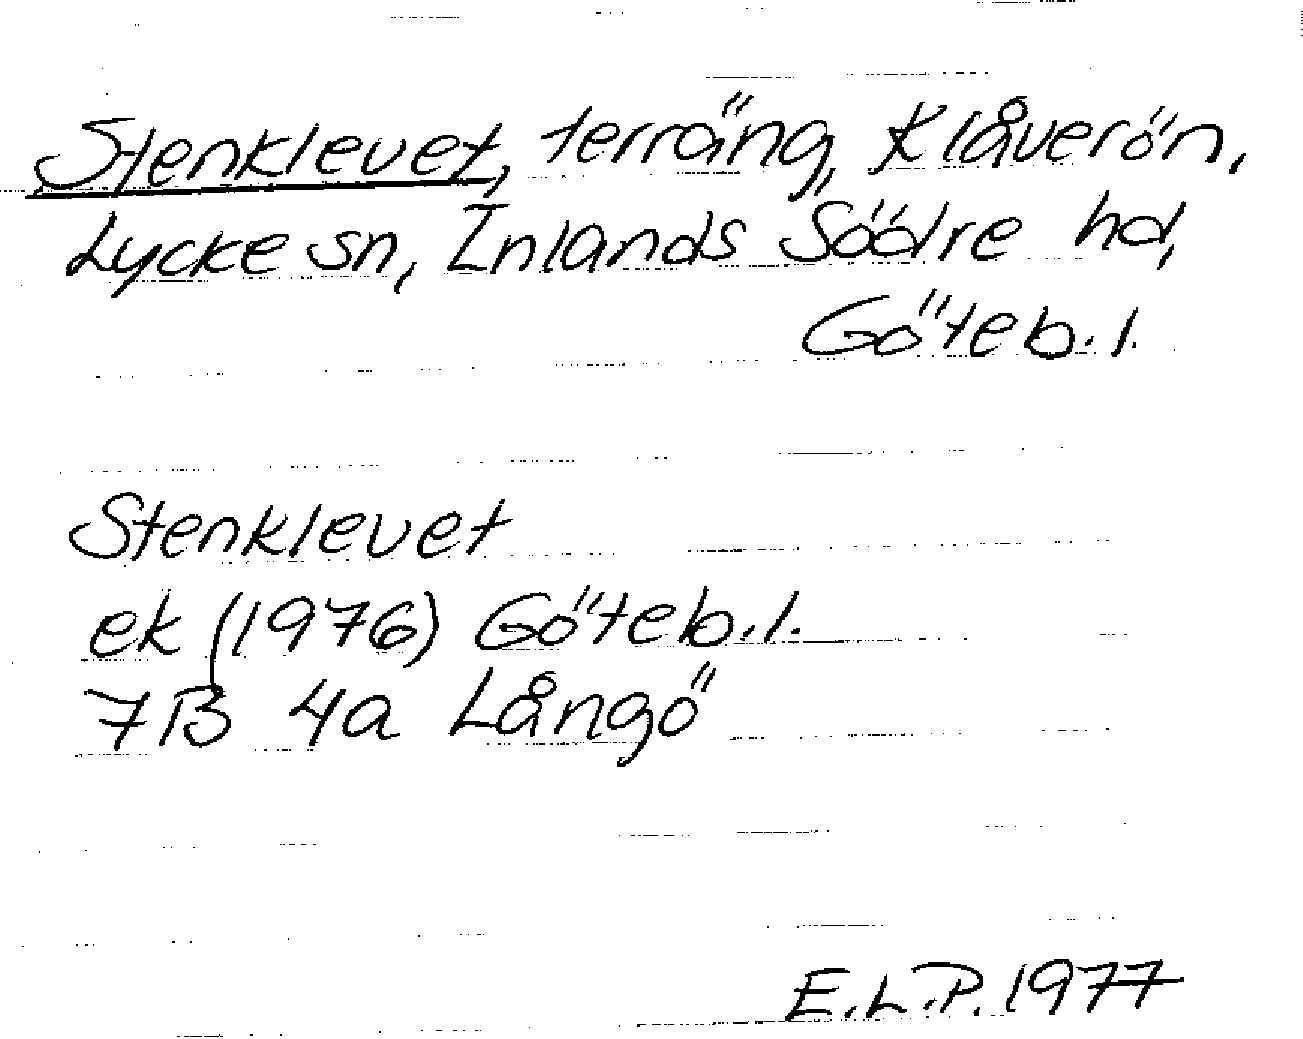 Stenklevet, terräng, Klåverön,
Lycke sn, Inlands Södre hd,
Göteb. l.
Stenklevet
ek (1976) Göteb. l.
7B 4a Långö
E.L.P. 1977